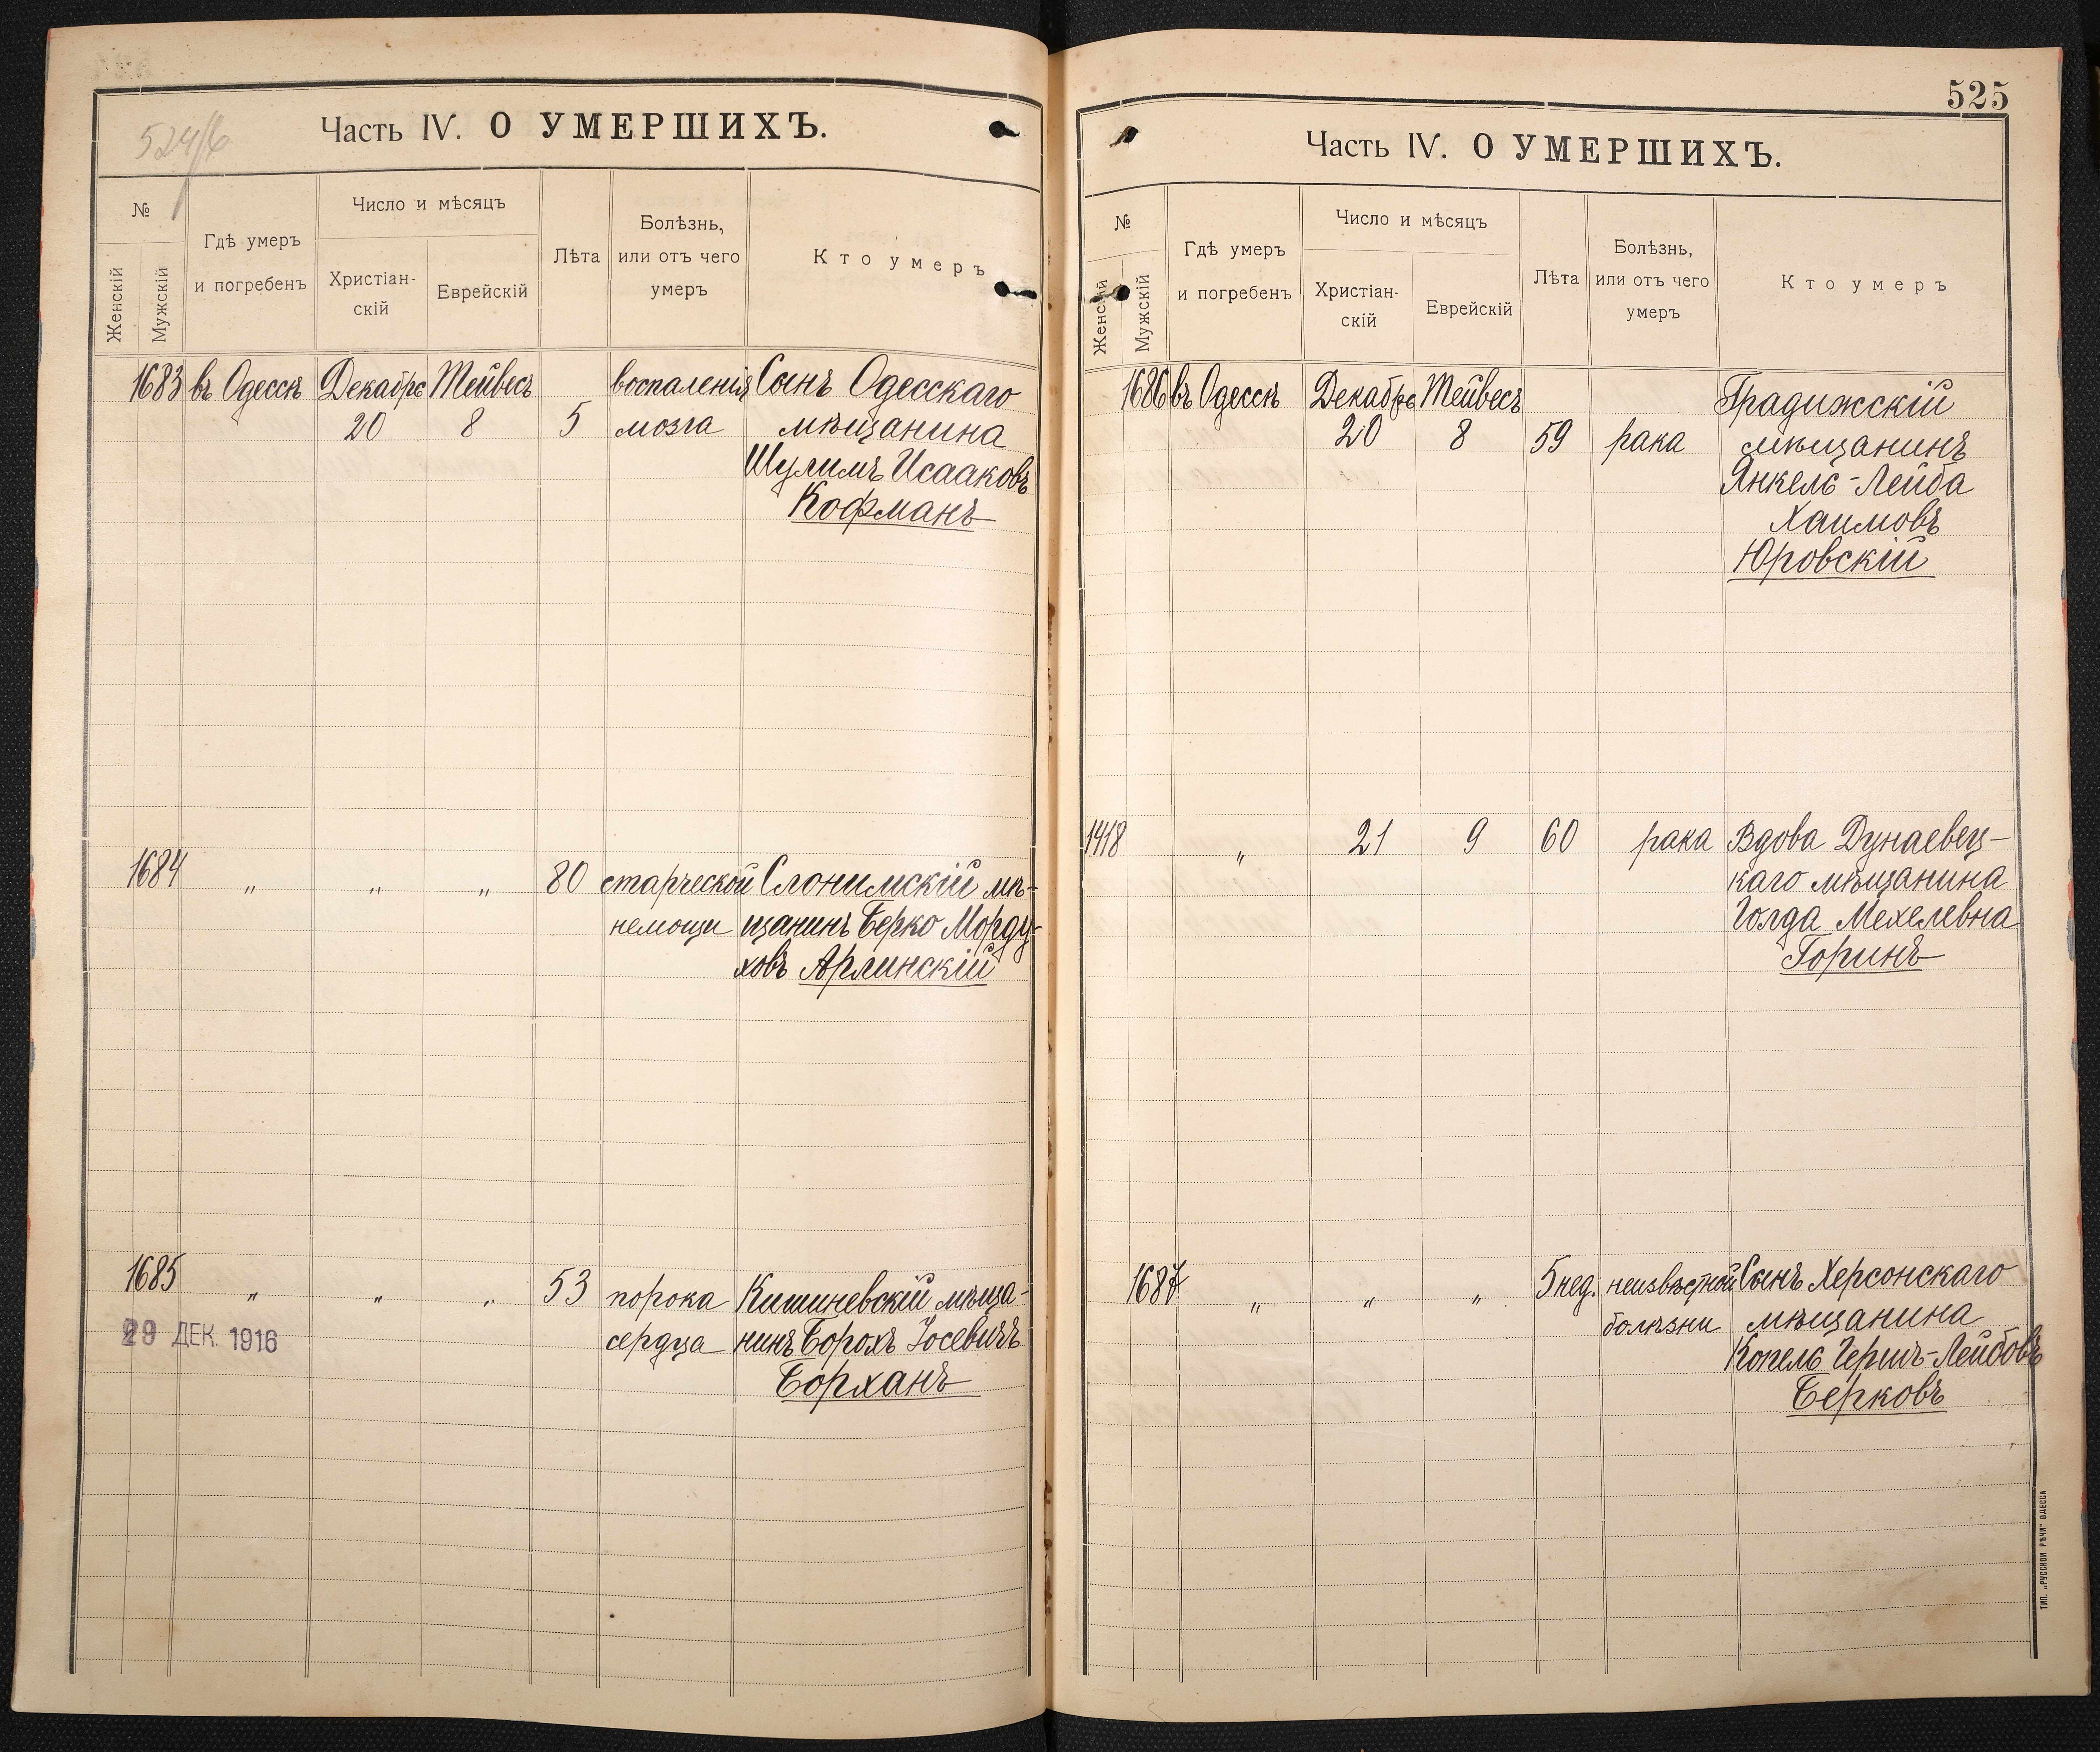 524/б
Часть IV. О УМЕРШИХЪ.
№
Женскій
Мужскій
Гдѣ умеръ
и погребенъ
Число и мѣсяцъ
Христіан-
скій
Еврейскій
Лѣта
Болѣзнь,
или отъ чего
умеръ
Кто умеръ
1683 въ Одессѣ Декабрь Тейвесъ воспаленія Сынъ Одесскаго
20 8 5 мозга мѣщанина
Шулимъ Исааковъ
Кофманъ
1684 " " " 80 старческой Слонимскій мѣ-
немощи щанинъ Берко Морду-
ховъ Арлинскій
1685 " " " 53 порока Кишиневскій мѣща-
29 ДЕК. 1916 сердца нинъ Борохъ Іосевичъ
Борханъ
525
Часть IV. О УМЕРШИХЪ.
№
Женскій
Мужскій
Гдѣ умеръ
и погребенъ
Число и мѣсяцъ
Христіан-
скій
Еврейскій
Лѣта
Болѣзнь,
или отъ чего
умеръ
Кто умеръ
1686 въ Одессѣ Декабрь Тейвесъ Градижскій
20 8 59 рака мѣщанинъ
Янкель-Лейба
Хаимовъ
Юровскій
1418 " 21 9 60 рака Вдова Дунаевец-
каго мѣщанина
Голда Мехелевна
Горинъ
1687 " " " 5 нед. неизвѣстной Сынъ Херсонскаго
болѣзни мѣщанина
Копель Гершъ-Лейбовъ
Берковъ
ТИП. „РУССКОЙ РѢЧИ" ОДЕССА